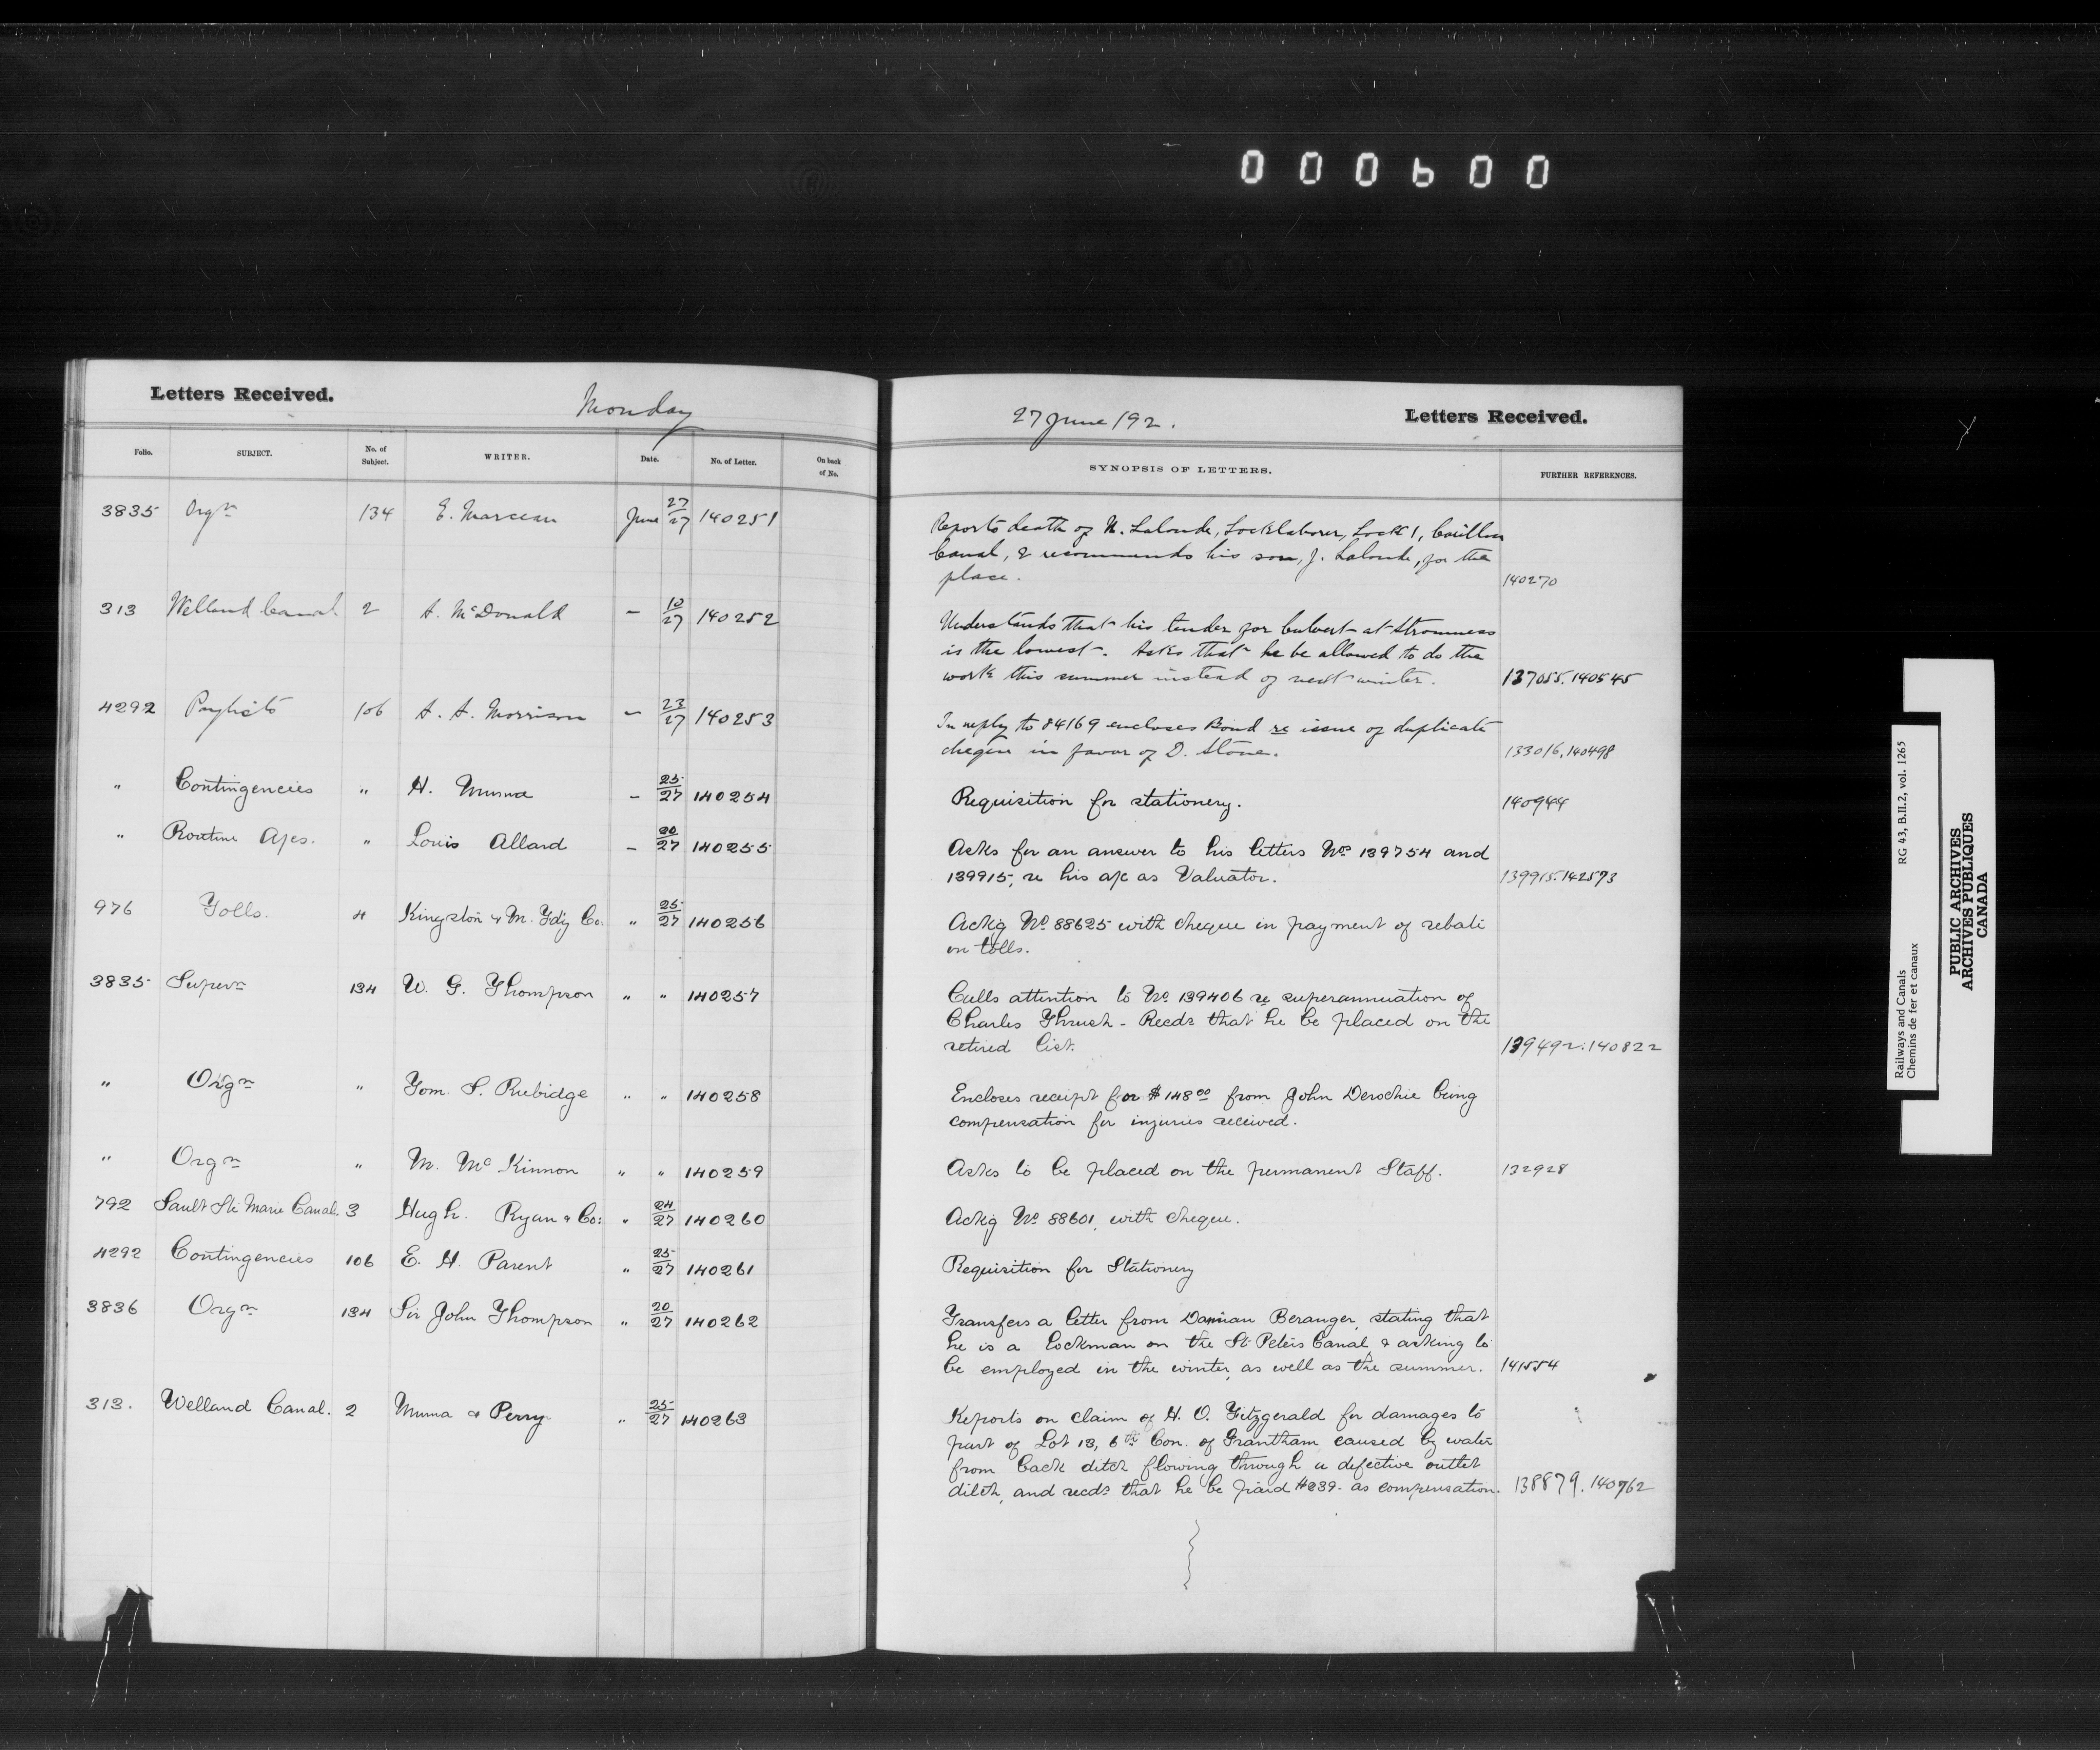 000600
Letters Received.
Monday
27 June /92.
Letters Received.
Folio. SUBJECT. No. of Subject. WRITER. Date. No. of Letter. On back of No. SYNOPSIS OF LETTERS. FURTHER REFERENCES.
3835 Orgn 134 E. Marceau June 27/27 140251
Reports death of N. Lalonde, Locklaborer, Lock 1, Carillon
Canal, & recommends his son, J. Lalonde, for the
place. 140270
313 Welland Canal 2 A. McDonald – 10/27 140252
Understands that his tender for Culvert at Stromness
is the lowest. Asks that he be allowed to do the
work this summer instead of next winter. 137055. 140545
4292 Paylists 106 A. A. Morrison – 23/27 140253
In reply to 84169 encloses Bond re issue of duplicate
cheque in favor of D. Stone. 133016, 140498
" Contingencies " H. Muma – 25/27 140254
Requisition for stationery. 140944
" Routine A/cs. " Louis Allard – 20/27 140255
Asks for an answer to his letters Nos 139754 and
139915, re his a/c as Valuator. 139915. 142573
976 Tolls. 4 Kingston & M. Fdg Co. " 25/27 140256
Ackg No 88625 with cheque in payment of rebate
on tolls.
3835 Supern 134 W. G. Thompson " " 140257
Calls attention to No. 139406 re superannuation of
Charles Thrush - Recds that he be placed on the
retired list. 139492. 140822
" Orgn " Tom. S. Rubidge " " 140258
Encloses receipt for $148 00 from John Derochie being
compensation for injuries received.
" Orgn " M. McKinnon " " 140259
Asks to be placed on the permanent Staff. 132928
792 Sault Ste Marie Canal. 3 Hugh Ryan & Co: " 24/27 140260
Ackg No 88601, with cheque.
4292 Contingencies 106 E. H. Parent " 25/27 140261
Requisition for Stationery
3836 Orgn 134 Sir John Thompson " 20/27 140262
Transfers a letter from Damian Beranger, stating that
he is a Lockman on the St Peters Canal & asking to
be employed in the winter, as well as the summer. 141554
313. Welland Canal. 2 Muma & Perry " 25/27 140263
Reports on claim of H. O. Fitzgerald for damages to
part of Lot 13, 6th Con. of Grantham caused by water
from back ditch flowing through a defective outlet
ditch, and recds that he be paid $239. as compensation. 138879. 140762
Railways and Canals RG 43, B.II.2, vol. 1265
Chemins de fer et canaux
PUBLIC ARCHIVES
ARCHIVES PUBLIQUES
CANADA